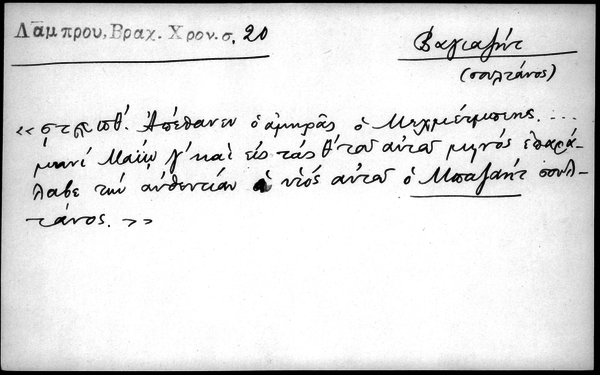 Λάμπρου, Βραχ. Χρον. σ. 20
Βαγιαζήτ
(σουλτάνος)
«ςτϡπθ'. Ἀπέθανεν ὁ ἀμηρᾶς ὁ Μεχμέτμπεης. ...
μηνί Μαΐῳ γ' καὶ εἰς τάς θ' τοῦ αὐτοῦ μηνός ἐπαρά-
λαβε τήν αὐθεντίαν ὁ υἱός αὐτοῦ ὁ Μπαζαήτ σουλ-
τάνος. »